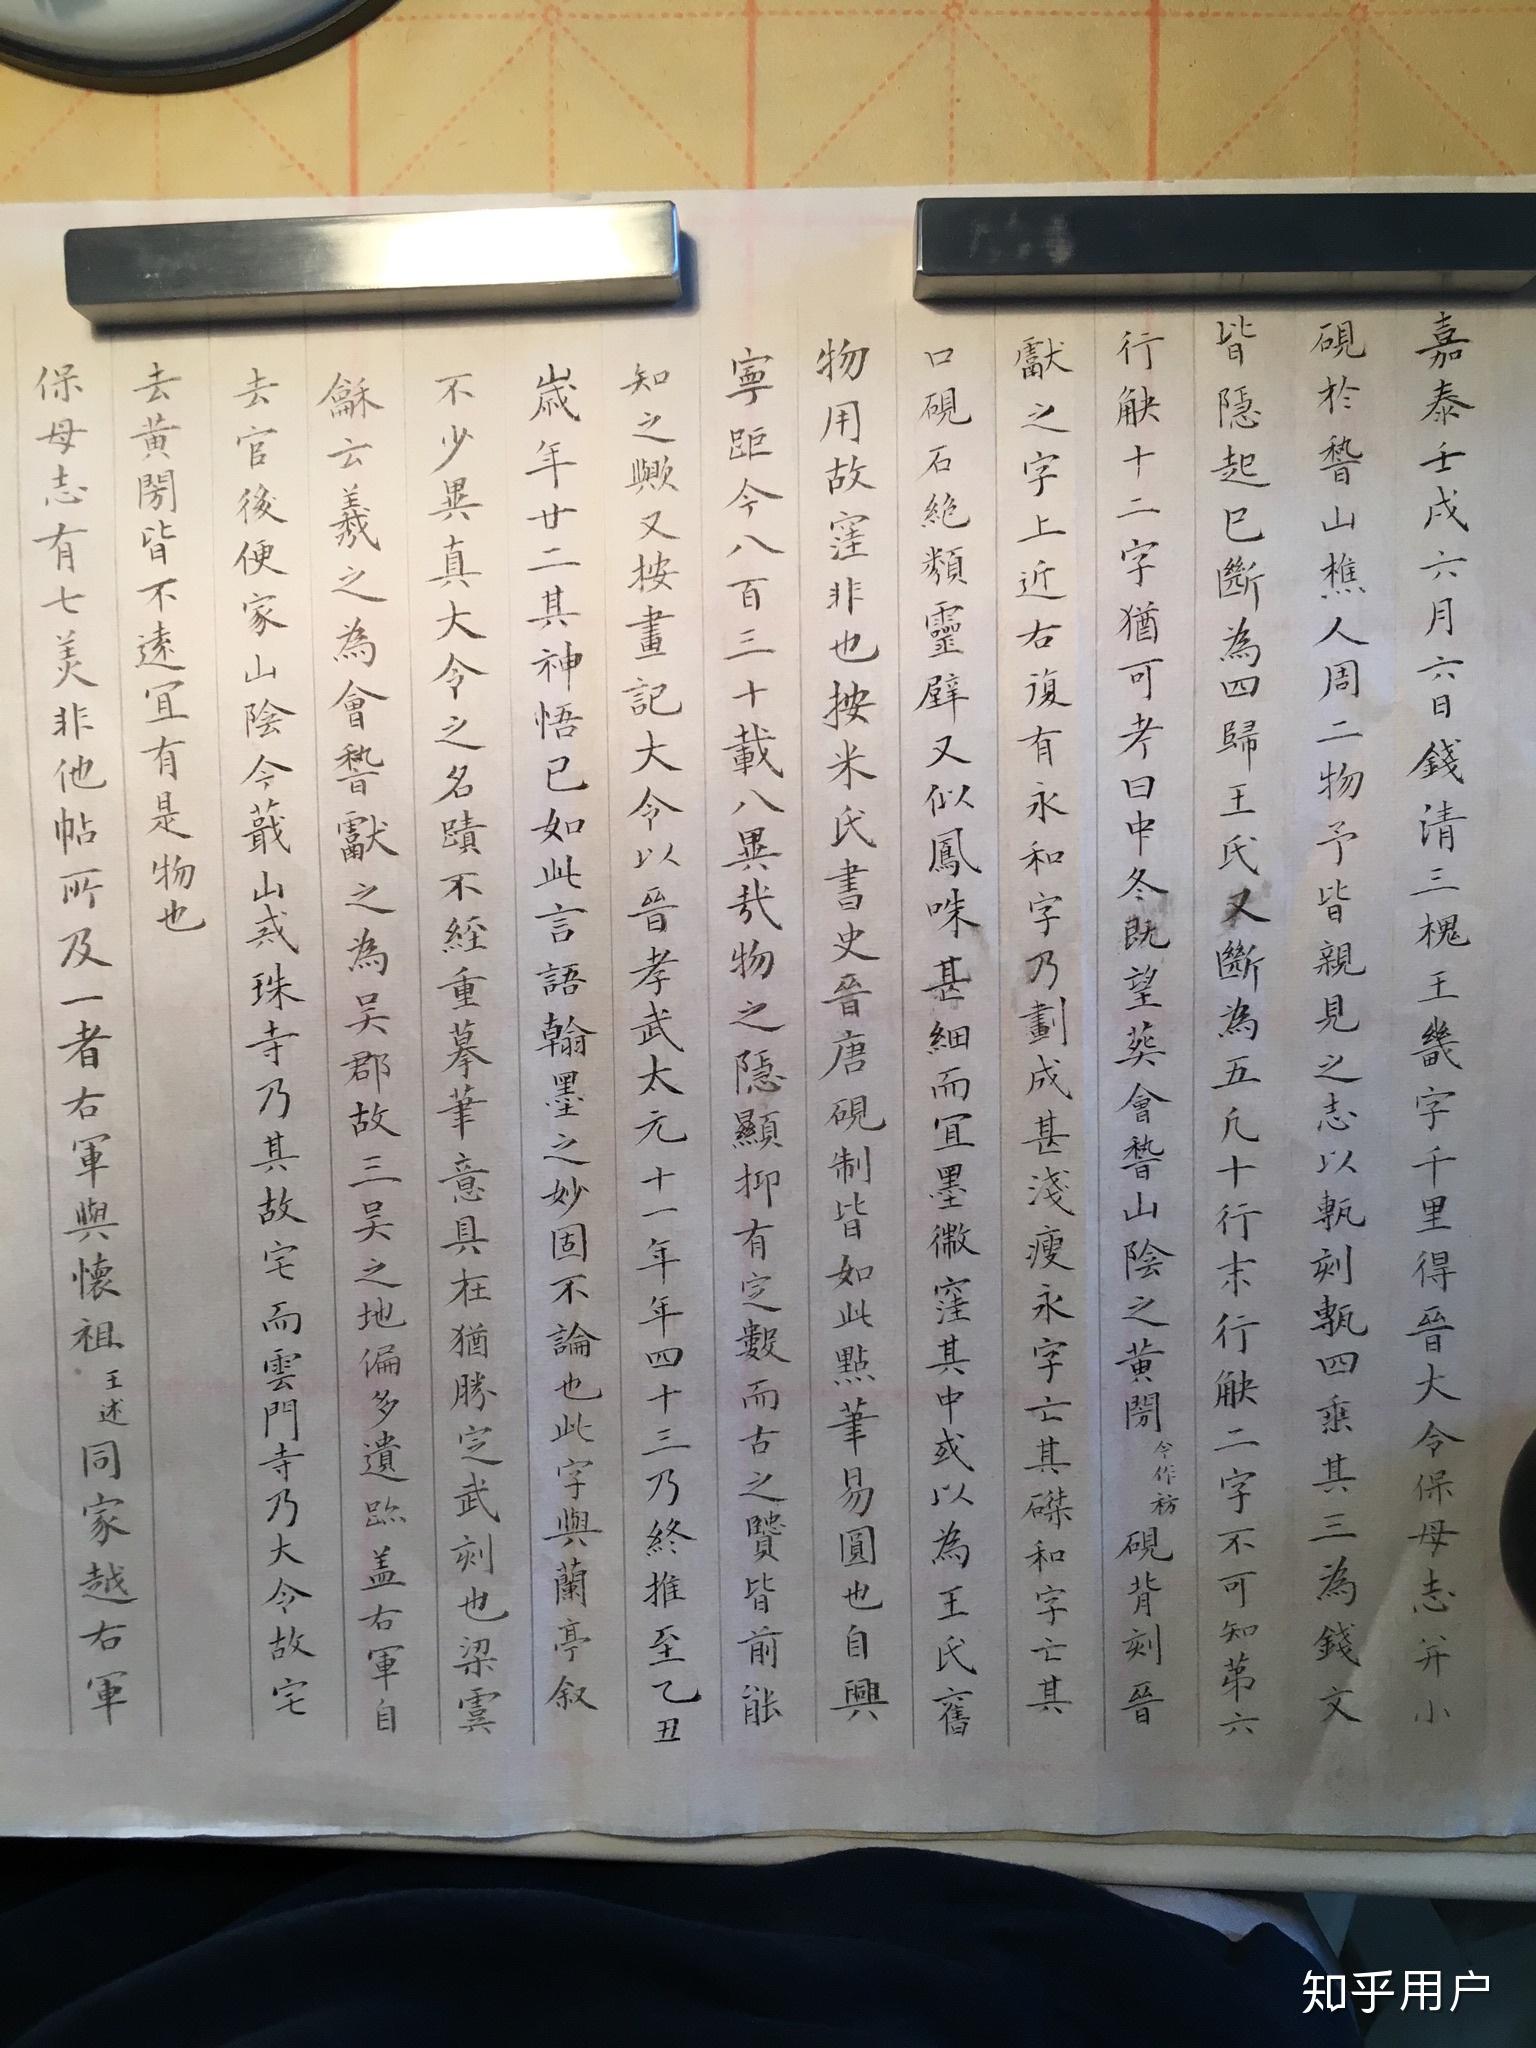 嘉泰壬戌六月六日錢清三槐王畿字千里得晉大令保母志并小
硯於稽山樵人周二物予皆親見之志以甎刻甎四垂其三為錢文
皆隱起已斷為四歸王氏又斷為五凡十行末行缺二字不可知第六
行缺十二字猶可考曰中冬既望葬會稽山陰之黃閍今作祊硯背刻晉
獻之字上近右復有永和字乃劃成甚淺瘦永字亡其磔和字亡其
口硯石絶類靈壁又似鳳咮甚細而宜墨微窪其中或以為王氏舊
物用故窪非也按米氏書史晉唐硯制皆如此點筆易圓也自興
寧距今八百三十載八異哉物之隱顯抑有定數而古之贒皆前能
知之歟又按畫記大令以晉孝武太元十一年年四十三乃終推至乙丑
歲年廿二其神悟已如此言語翰墨之妙固不論也此字與蘭亭叙
不少異真大令之名蹟不經重摹筆意具在猶勝定武刻也梁虞
龢云羲之為會稽獻之為吳郡故三吳之地偏多遺跡盖右軍自
去官後便家山陰今蕺山戒珠寺乃其故宅而雲門寺乃大令故宅
去黃閍皆不遠宜有是物也
保母志有七美非他帖所及一者右軍與懷祖王述同家越右軍
知乎用户